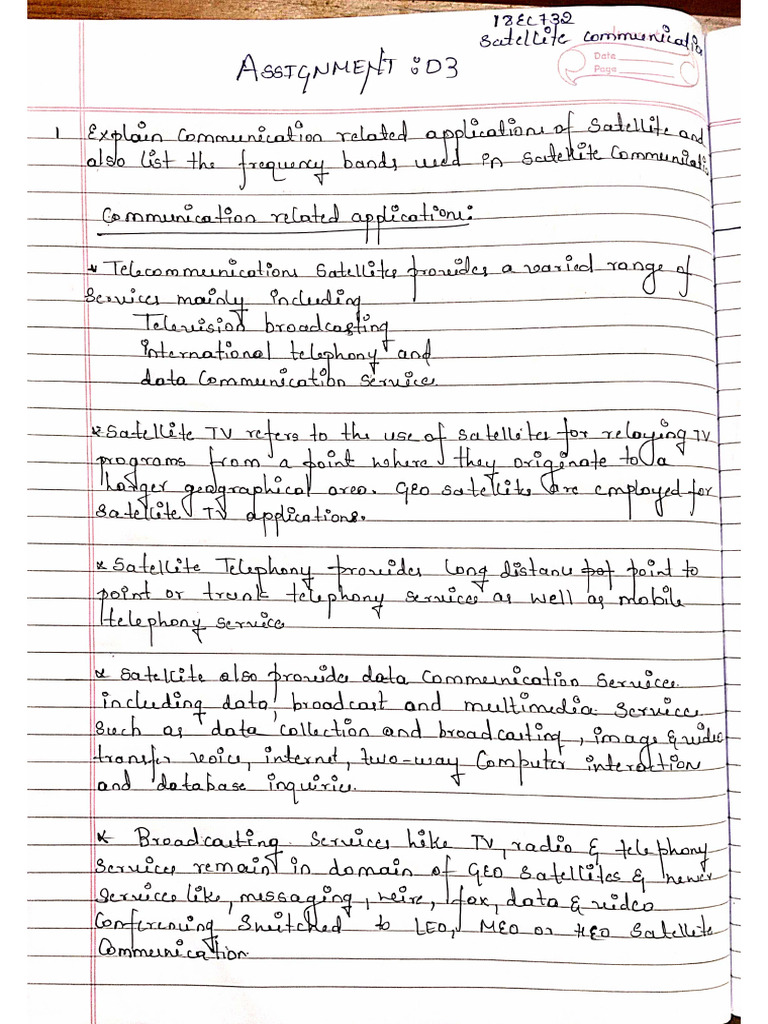 18EC732
Satellite Communicatio
Date
Page
ASSIGNMENT :03
1 Explain Communication related applications of Satellite and
also list the frequency bands used in Satellite Communicati
Communication related applications:
* Telecommunications Satellites provides a varied range of
services mainly including
Television broadcasting
international telephony and
data Communication service.
* Satellite TV refers to the use of satellites for relaying TV
programs from a point where they originate to a
larger geographical area. GEO satellite are employed for
satellite TV applications.
* Satellite Telephony provides long distance point to
point or trunk telephony services as well as mobile
telephony service
* Satellite also provides data Communication services
including data, broadcast and multimedia services
such as data collection and broadcasting, image & video
transfer voice, internet, two-way Computer interaction
and database inquiries.
* Broadcasting services like TV, radio & telephony
services remain in domain of GEO satellites & newer
services like, messaging, fax, data & video
Conferening switched to LEO, MEO or HEO satellite
Communication.